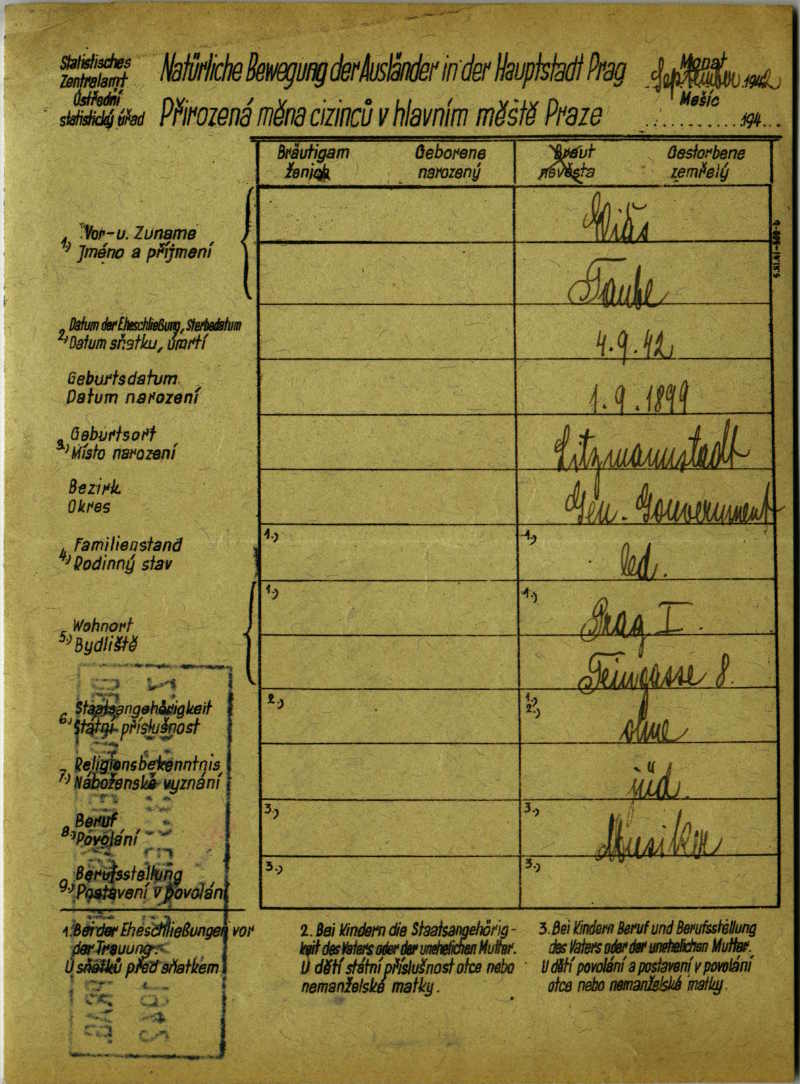 Statistisches
Zentralamt
Ústřední
statistický úřad
Natürliche Bewegung der Ausländer in der Hauptstadt Prag
Přirozená měna cizinců v hlavním městě Praze
Monat
September 1942
Měsíc
194
Bräutigam Geborene
ženich narozený
Braut Gestorbene
nevěsta zemřelý
1.) Vor- u. Zuname
Jméno a příjmení
Taube
2.) Datum der Eheschließung, Sterbedatum
Datum sňatku, úmrtí
4.9.42
Geburtsdatum
Datum narození
1.9.1899
3.) Geburtsort
Místo narození
Litzmannstadt
Bezirk
Okres
Gen. Gouvernement
4.) Familienstand
Rodinný stav
1.) 1.)
led.
5.) Wohnort
Bydliště
1.) 1.)
Prag I.
Teingasse 8.
6.) Staatsangehörigkeit
Státní příslušnost
2.) 1.) 2.)
ohne
7.) Religionsbekenntnis
Náboženské vyznání
jüd.
8.) Beruf
Povolání
3.) 3.)
Musiker
9.) Berufsstellung
Postavení v povolání
3.) 3.)
1. Bei der Eheschließungen vor
der Trauung.
U sňatků před sňatkem.
2. Bei Kindern die Staatsangehörig-
keit des Vaters oder der unehelichen Mutter.
U dětí státní příslušnost otce nebo
nemanželské matky.
3. Bei Kindern Beruf und Berufsstellung
des Vaters oder der unehelichen Mutter.
U dětí povolání a postavení v povolání
otce nebo nemanželské matky.